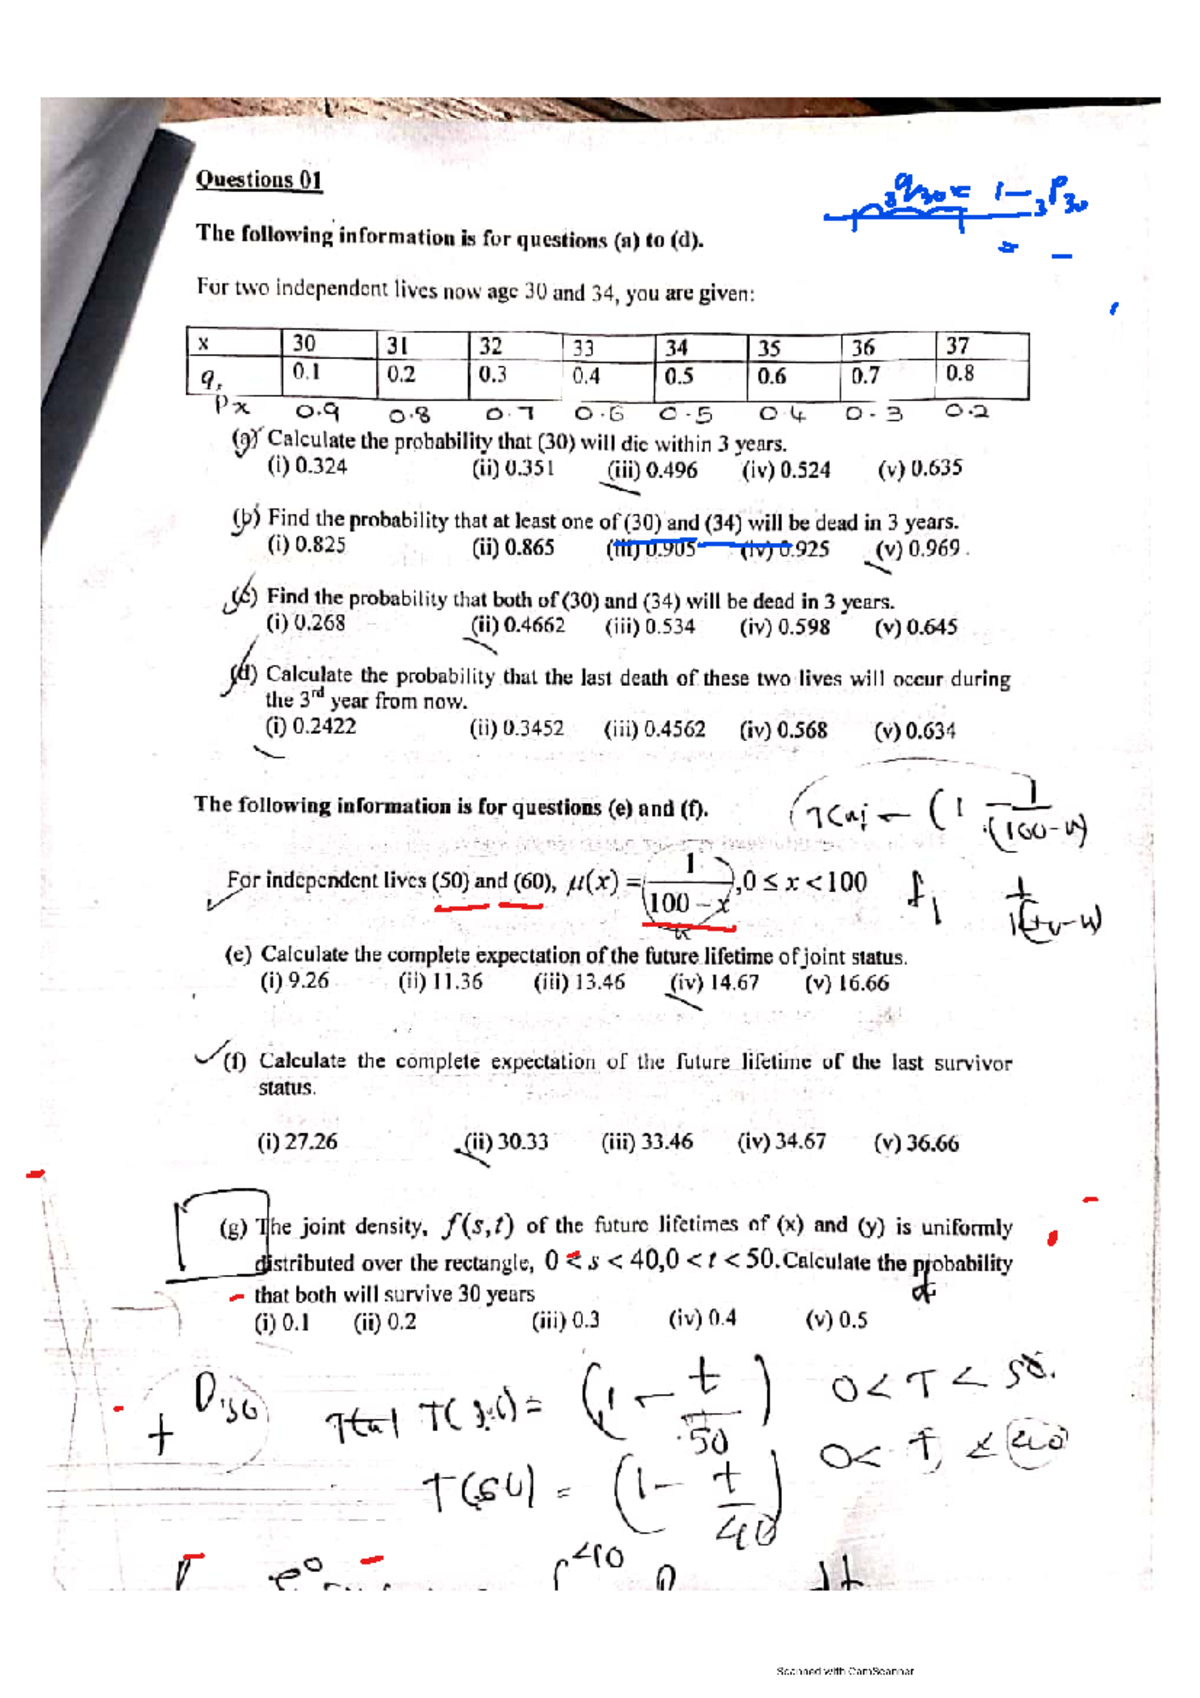 ₃q₃₀ = 1 - ₃P₃₀
= -
Questions 01
The following information is for questions (a) to (d).
For two independent lives now age 30 and 34, you are given:
x 30 31 32 33 34 35 36 37
qₓ 0.1 0.2 0.3 0.4 0.5 0.6 0.7 0.8
Px 0.9 0.8 0.7 0.6 0.5 0.4 0.3 0.2
(a) Calculate the probability that (30) will die within 3 years.
(i) 0.324 (ii) 0.351 (iii) 0.496 (iv) 0.524 (v) 0.635
(b) Find the probability that at least one of (30) and (34) will be dead in 3 years.
(i) 0.825 (ii) 0.865 (iii) 0.905 (iv) 0.925 (v) 0.969
(c) Find the probability that both of (30) and (34) will be dead in 3 years.
(i) 0.268 (ii) 0.4662 (iii) 0.534 (iv) 0.598 (v) 0.645
(d) Calculate the probability that the last death of these two lives will occur during
the 3rd year from now.
(i) 0.2422 (ii) 0.3452 (iii) 0.4562 (iv) 0.568 (v) 0.634
The following information is for questions (e) and (f).
For independent lives (50) and (60), μ(x) = 1/(100 − x), 0 ≤ x < 100
(e) Calculate the complete expectation of the future lifetime of joint status.
(i) 9.26 (ii) 11.36 (iii) 13.46 (iv) 14.67 (v) 16.66
(f) Calculate the complete expectation of the future lifetime of the last survivor
status.
(i) 27.26 (ii) 30.33 (iii) 33.46 (iv) 34.67 (v) 36.66
(g) The joint density, f(s,t) of the future lifetimes of (x) and (y) is uniformly
distributed over the rectangle, 0 < s < 40, 0 < t < 50. Calculate the probability
that both will survive 30 years
(i) 0.1 (ii) 0.2 (iii) 0.3 (iv) 0.4 (v) 0.5
= (1 - t/50) 0 < T < 50.
= (1 - t/40) 0 < T < 40
Scanned with CamScanner